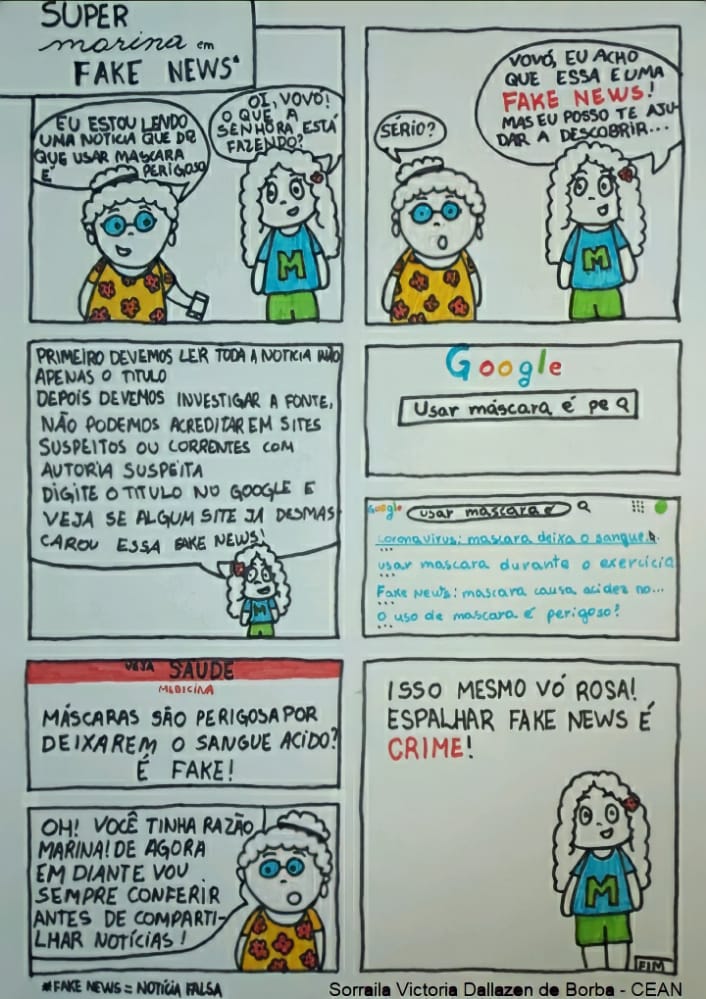 SUPER
marina em
FAKE NEWS*
EU ESTOU LENDO
UMA NOTICIA QUE DIZ
QUE USAR MASCARA
É PERIGOSO
OI, VOVÓ!
O QUE A
SENHORA ESTÁ
FAZENDO?
SÉRIO?
VOVÓ, EU ACHO
QUE ESSA E UMA
FAKE NEWS!
MAS EU POSSO TE AJU-
DAR A DESCOBRIR...
M
M
PRIMEIRO DEVEMOS LER TODA A NOTICIA NÃO
APENAS O TITULO
DEPOIS DEVEMOS INVESTIGAR A FONTE,
NÃO PODEMOS ACREDITAR EM SITES
SUSPEITOS OU CORRENTES COM
AUTORIA SUSPEITA
DIGITE O TITULO NO GOOGLE E
VEJA SE ALGUM SITE JA DESMAS
CAROU ESSA FAKE NEWS!
M
Google
Usar máscara é pe
Google usar mascara e
Coronavirus: mascara deixa o sangue..
usar mascara durante o exercicio
...
Fake News: mascara causa acidez no...
...
O uso de mascara é perigoso?
...
VEJA SAUDE
MEDICINA
MÁSCARAS SÃO PERIGOSA POR
DEIXAREM O SANGUE ACIDO?
É FAKE!
OH! VOCÊ TINHA RAZÃO
MARINA! DE AGORA
EM DIANTE VOU
SEMPRE CONFERIR
ANTES DE COMPARTI-
LHAR NOTÍCIAS!
ISSO MESMO VÓ ROSA!
ESPALHAR FAKE NEWS É
CRIME!
M
FIM
*FAKE NEWS = NOTÍCIA FALSA
Sorraila Victoria Dallazen de Borba - CEAN